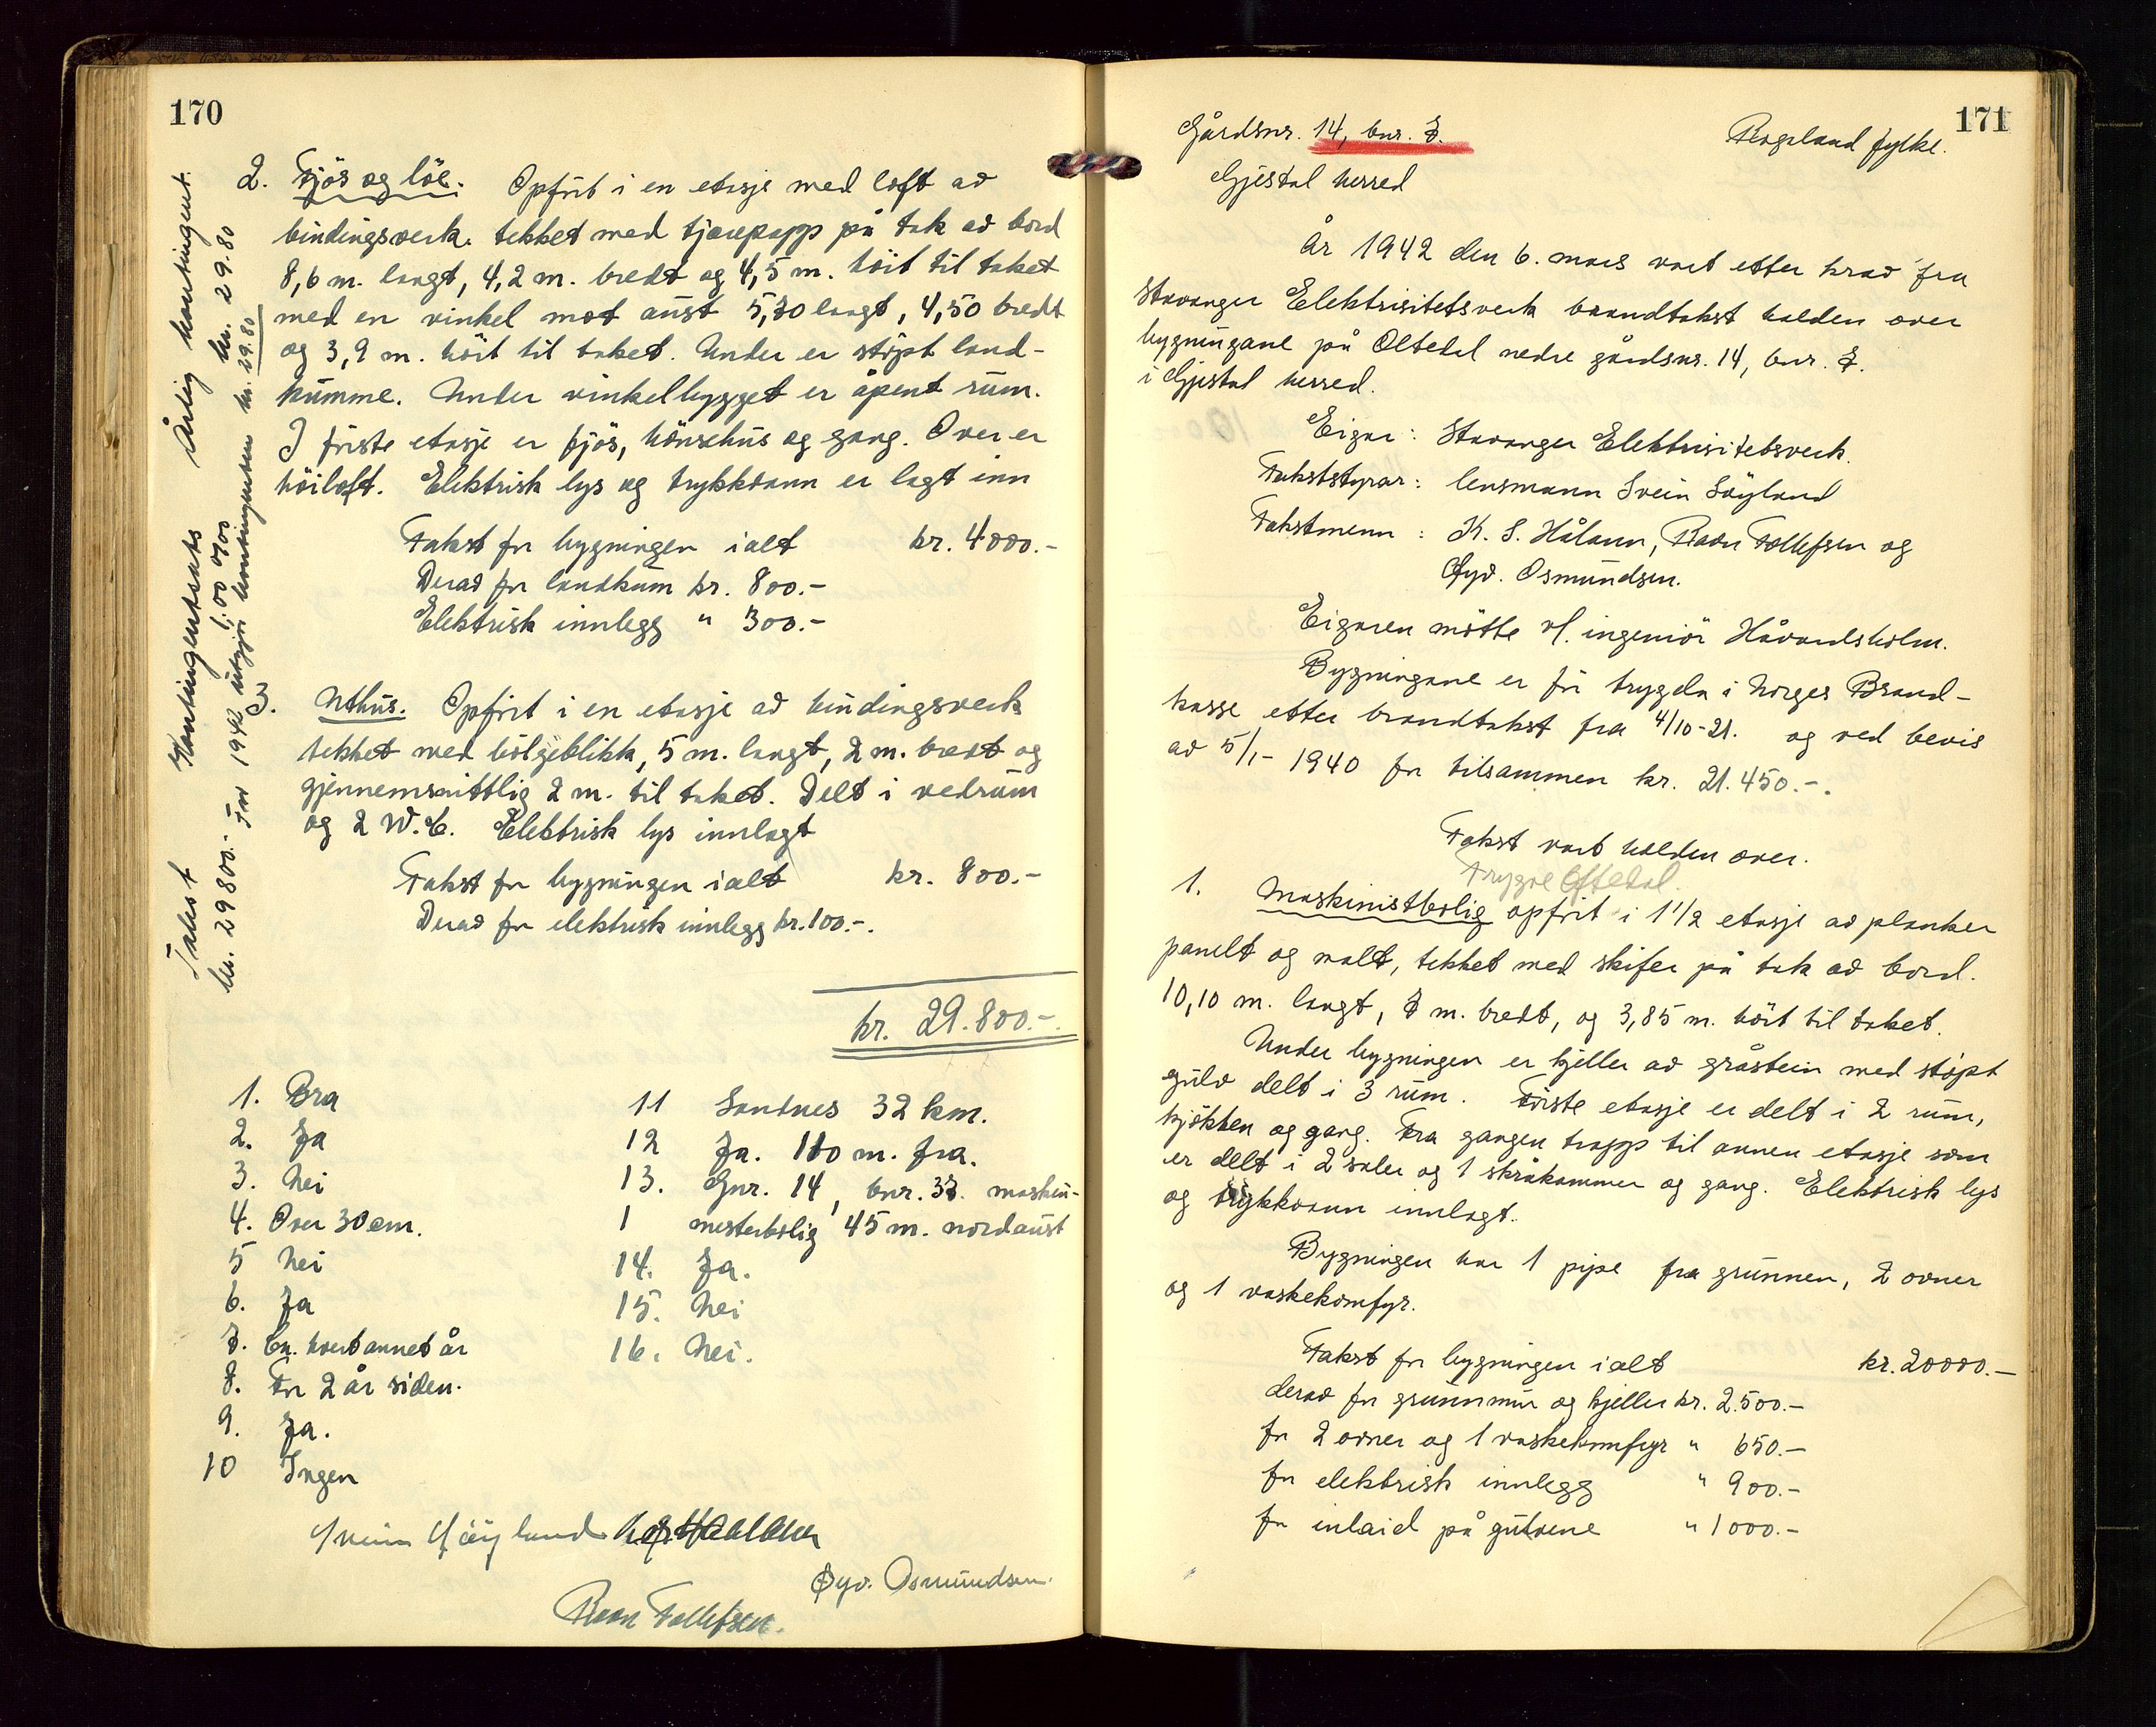 170
Takst Kontingentsats Årlig kontingent.
kr. 29800.- 1,00 o/oo kr. 29.80
For 1942 utgjør kontingenten kr. 29.80
2. Fjös og löe. Opfört i en etasje med loft av
bindingsverk. tekket med tjærepapp på tak av bord
8,6 m. langt, 4,2 m. bredt og 4,5 m. höit til taket
med en vinkel mot aust 5,70 langt, 4,50 bredt
og 3,9 m. höit til taket. Under er stöpt land-
kumme. Under vinkelbygget er åpent rum.
I förste etasje er fjös, hönsehus og gang. Over er
höiloft. Elektrisk lys og trykkvann er lagt inn
Takst for bygningen ialt kr. 4000.-
Derav for landkum kr. 800.-
Elektrisk innlegg " 300.-
3. Uthus. Opfört i en etasje av bindingsverk
tekket med bölgeblikk, 5 m. langt, 2 m. bredt og
gjennemsnittlig 2 m. til taket. Delt i vedrum
og 2 W.C. Elektrisk lys innlagt
Takst for bygningen ialt kr. 800.-
Derav for elektrisk innlegg kr. 100.-.
kr. 29.800.-.
1. Bra
2. Ja
3. Nei
4. Over 30 cm.
5 Nei
6. Ja
7. Ca. hvert annet år
8. For 2 år siden.
9. Ja.
10 Ingen
11 Sandnes 32 km.
12 Ja. 110 m. fra.
13. Gnr. 14, bnr. 37. maskin-
1 mesterbolig 45 m. nordaust
14. Ja.
15. Nei
16. Nei.
Svein Söyland K. S. Haaland
Øyv. Osmundsen.
Ravn Tollefsen.
171
Gårdsnr. 14, bnr. 7. Rogaland fylke.
Gjestal herred
År 1942 den 6. mars vart etter krav fra
Stavanger Elektrisitetsverk branntakst halden over
bygningane på Oltedal nedre gårdsnr. 14, bnr. 7.
i Gjestal herred.
Eigar: Stavanger Elektrisitetsverk.
Takststyrar: lensmann Svein Söyland
Takstmenn: K. S. Hålann, Ravn Tollefsen og
Øyv. Osmundsen.
Eigaren mötte v/. ingeniör Håvardsholm.
Bygningane er för trygda i Norges Brand-
kasse etter brandtakst fra 4/10-21. og ved bevis
av 5/1-1940 for tilsammen kr. 21.450.-.
Takst vart halden over.
Trygve Oftedal.
1. Maskinistbolig opfört i 1 1/2 etasje av planker
panelt og malt, tekket med skifer på tak av bord.
10,10 m. langt, 7 m. bredt, og 3,85 m. höit til taket.
Under bygningen er kjeller av gråstein med stöpt
gulv delt i 3 rum. Förste etasje er delt i 2 rum,
kjökken og gang. Fra gangen trapp til annen etasje som
er delt i 2 saler og 1 skråkammer og gang. Elektrisk lys
og trykkvann innlagt.
Bygningen har 1 pipe fra grunnen, 2 ovner
og 1 vaskekomfyr.
Takst for bygningen ialt kr. 20000.-
derav for grunnmur og kjeller kr. 2.500.-
for 2 ovner og 1 vaskekomfyr " 650.-
for elektrisk innlegg " 900.-
for inlaid på gulvene " 1000.-